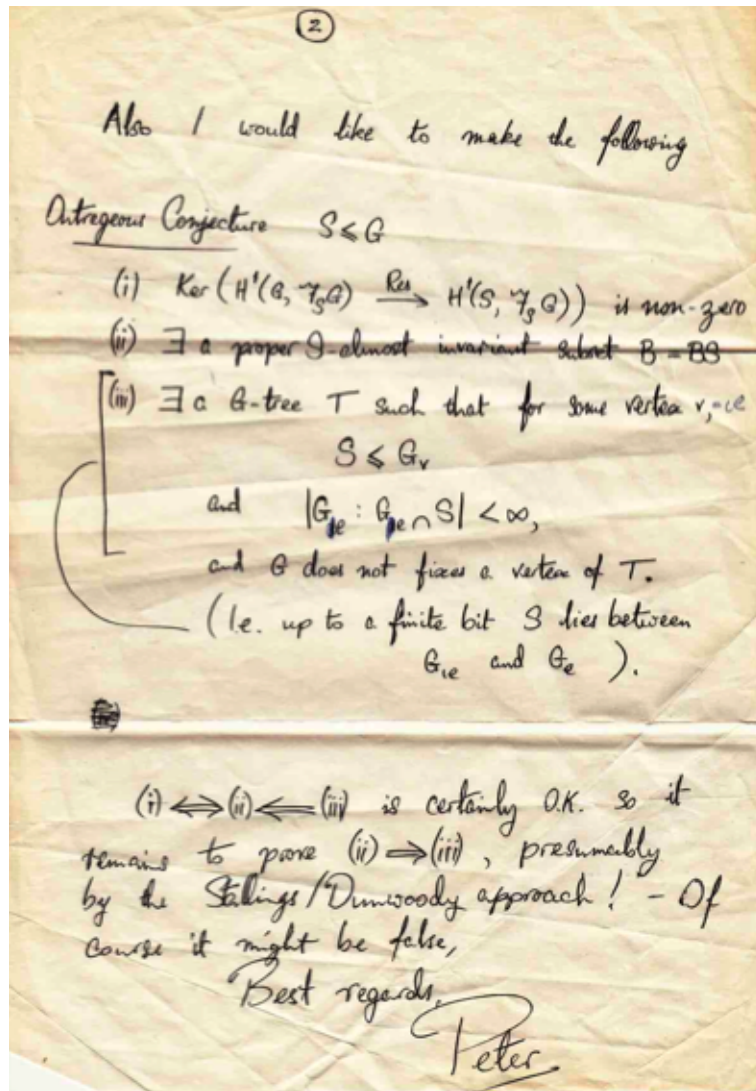 2
Also I would like to make the following
Outrageous Conjecture S ≤ G
(i) Ker (H¹(G, 𝓕_S G) Res→ H¹(S, 𝓕_S G)) is non-zero
(ii) ∃ a proper S-almost invariant subset B = BS
(iii) ∃ a G-tree T such that for some vertex v,=ιe
S ≤ G_v
and |G_e : G_e ∩ S| < ∞,
and G does not fixes a vertex of T.
(I.e. up to a finite bit S lies between
G_ιe and G_e ).
(i) ⟺ (ii) ⟸ (iii) is certainly O.K. so it
remains to prove (ii) ⟹ (iii), presumably
by the Stallings/Dunwoody approach! - Of
course it might be false,
Best regards,
Peter